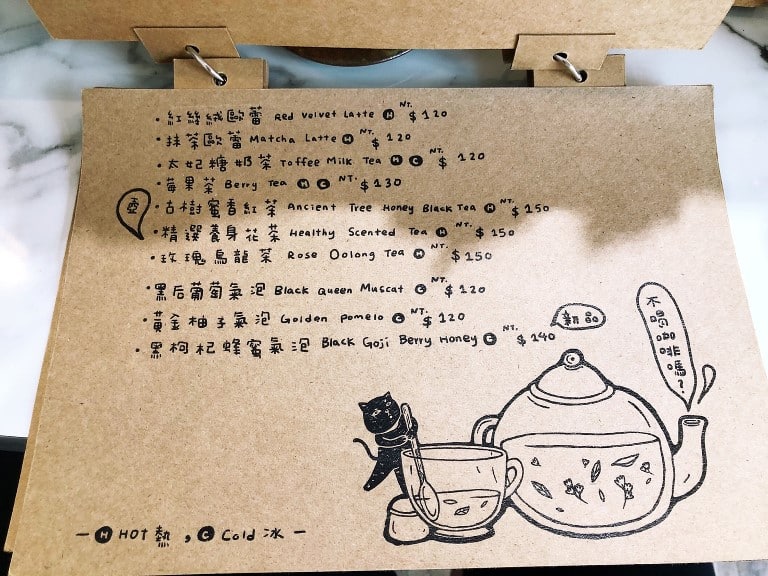 • 紅絲絨歐蕾 Red Velvet Latte H NT. $120
• 抹茶歐蕾 Matcha Latte H NT. $120
• 太妃糖奶茶 Toffee Milk Tea H C NT. $120
• 莓果茶 Berry Tea H C NT. $130
壺
• 古樹蜜香紅茶 Ancient Tree Honey Black Tea H NT. $150
• 精選養身花茶 Healthy Scented Tea H NT. $150
• 玫瑰烏龍茶 Rose Oolong Tea H NT. $150
• 黑后葡萄氣泡 Black Queen Muscat C NT. $120
• 黃金柚子氣泡 Golden Pomelo C NT. $120
• 黑枸杞蜂蜜氣泡 Black Goji Berry Honey C NT. $140
新品
不喝咖啡嗎?
— H HOT 熱 , C Cold 冰 —